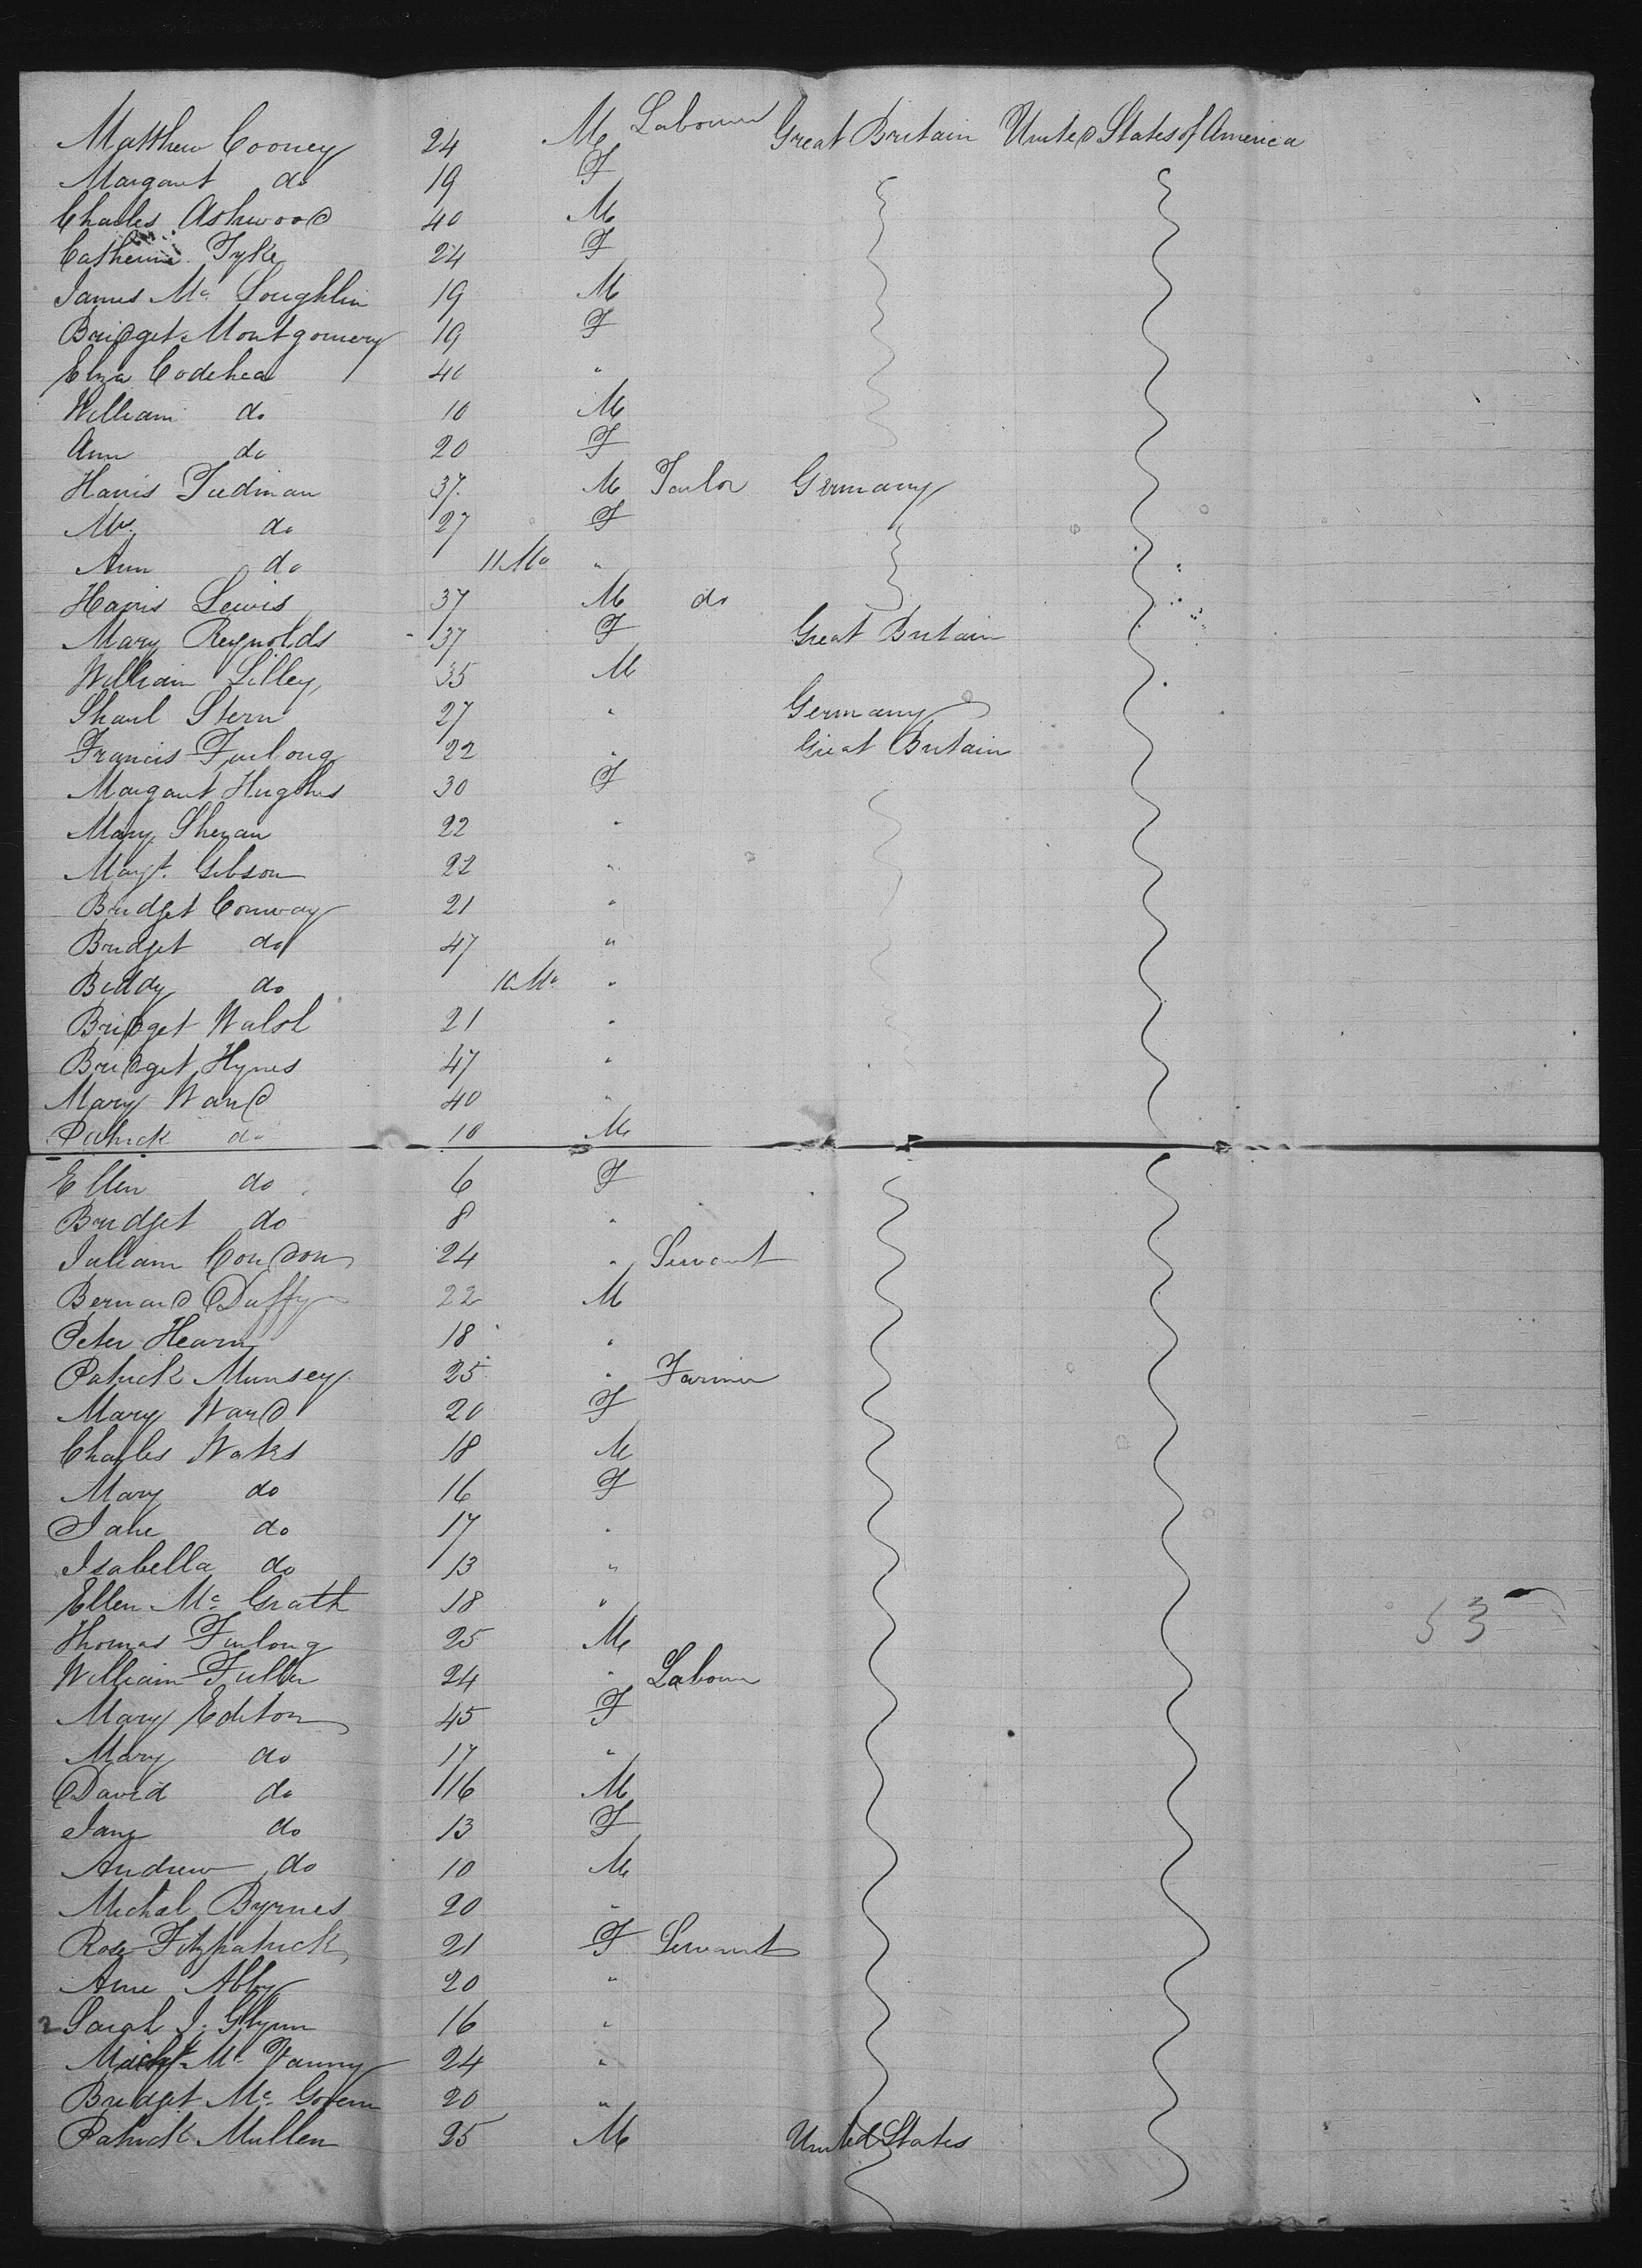 Matthew Cooney 24 M Labourer Great Britain United States of America
Margaret do 19 F
Charles Ashwood 40 M
Catherine Fyke 24 F
James Mc Loughlin 19 M
Bridget Montgomery 19 F
Eliza Codehea 40 "
William do 10 M
Ann do 20 F
Harris 37 M Tailor Germany
Mrs. do 27 F
Ann do 11 Mo "
Harris Lewis 37 M do
Mary Reynolds 37 F Great Britain
William Lilley 35 M
Shaul Stern 27 " Germany
Francis Furlong 22 " Great Britain
Margaret Hughes 30 F
Mary Sheran 22 "
Margt. Gibson 22 "
Bridget Conway 21 "
Bridget do 47 "
Biddy do 10 Mo "
Bridget Walsh 21 "
Bridget Hynes 47 "
Mary Ward 40 "
Patrick do 10 M
Ellen do 6 F
Bridget do 8 "
Juliann Condon 24 " Servant
Bernard Duffy 22 M
Peter Hearn 18 "
Patrick Munsey 25 " Farmer
Mary Ward 20 F
Charles Waters 18 M
Mary do 16 F
Jane do 17 "
Isabella do 13 "
Ellen Mc Grath 18 "
Thomas Furlong 25 M
53
William Fuller 24 " Labourer
Mary Editon 45 F
Mary do 17 "
David do 16 M
Jane do 13 F
Andrew do 10 M
Michal Byrnes 20 "
Rose Fitzpatrick 21 F Servant
Anne Abby 20 "
2 Sarah J. Glynn 16 "
Mc 24 "
Bridget Mc Govern 20 "
Patrick Mullen 25 M United States